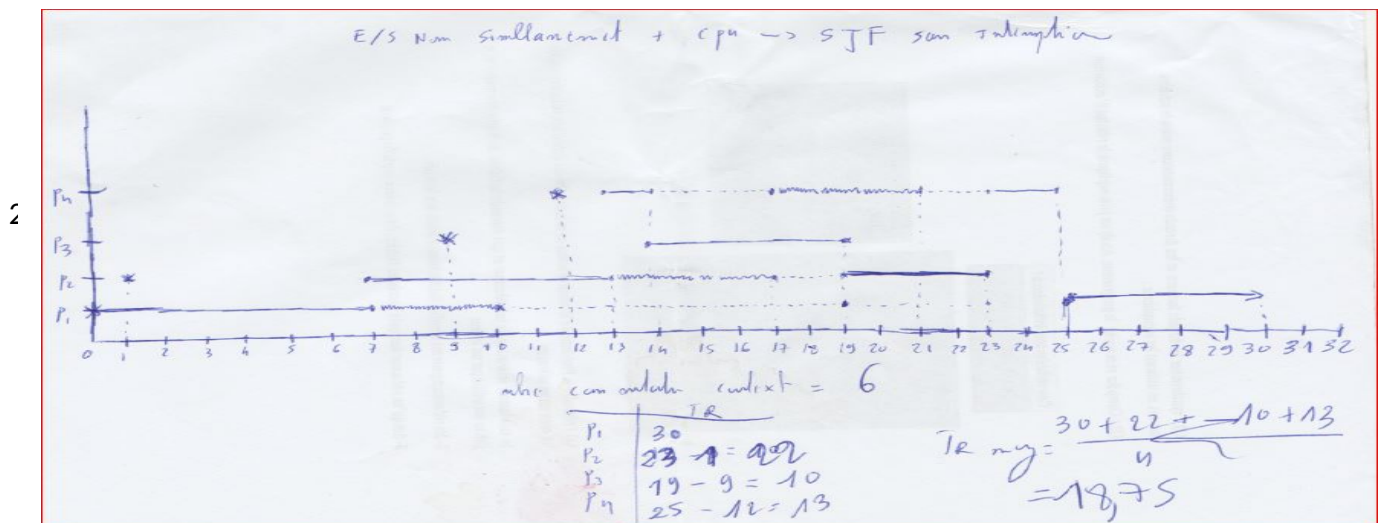 E/S Non simultanemet + cpu -> SJF san
P4
2
P3
P2
P1
0 1 2 3 4 5 6 7 8 9 10 11 12 13 14 15 16 17 18 19 20 21 22 23 24 25 26 27 28 29 30 31 32
nbre context = 6
TR
P1 30
P2 23 - 1 = 22
P3 19 - 9 = 10
P4 25 - 12 = 13
TR moy = 30 + 22 + 10 + 13
4
= 18,75